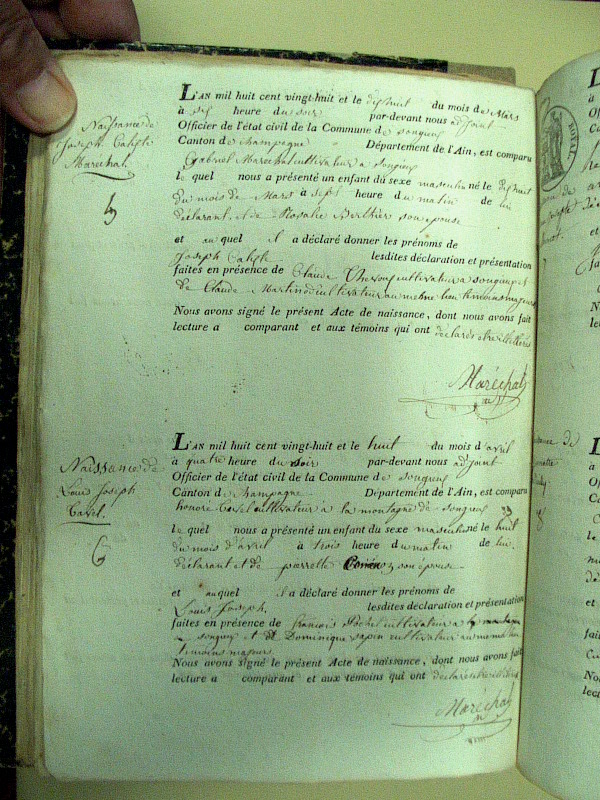 Naissance de
Joseph Calixte
Marechal.
5
L'AN mil huit cent vingt-huit et le dix huit du mois de Mars
à six heure du soir par-devant nous adjoint
Officier de l'état civil de la Commune de songieu
Canton de champagne Département de l'Ain, est comparu
Gabriel Marechal cultivateur a songieu
le quel nous a présenté un enfant du sexe masculin né le dix huit
du mois de Mars à sept heure du matin de lui
déclarant, et de Rosalie Berthier son epouse
et au quel il a déclaré donner les prénoms de
Joseph Calixte lesdites déclaration et présentation
faites en présence de Claude cultivateur a songieu et
de Claude Martinod cultivateur au meme lieu temoins majeurs
Nous avons signé le présent Acte de naissance, dont nous avons fait
lecture a comparant et aux témoins qui ont déclarés etre illettrés
Maréchal
Naissance de
Louis Joseph
6
L'AN mil huit cent vingt-huit et le huit du mois d'avril
à quatre heure du soir par-devant nous adjoint
Officier de l'état civil de la Commune de songieu
Canton de champagne Département de l'Ain, est comparu
honoré cultivateur à la montagne de songieu
le quel nous a présenté un enfant du sexe masculin né le huit
du mois d'avril à trois heure du matin de lui
déclarant et de pierrette son épouse
et auquel il a déclaré donner les prénoms de
Louis Joseph. lesdites déclaration et présentation
faites en présence de françois cultivateur a la montagne
a songieu et de Dominique cultivateur au meme lieu
temoins majeurs
Nous avons signé le présent Acte de naissance, dont nous avons fait
lecture a comparant et aux témoins qui ont déclaré etre illettrés
Maréchal
ROYAL